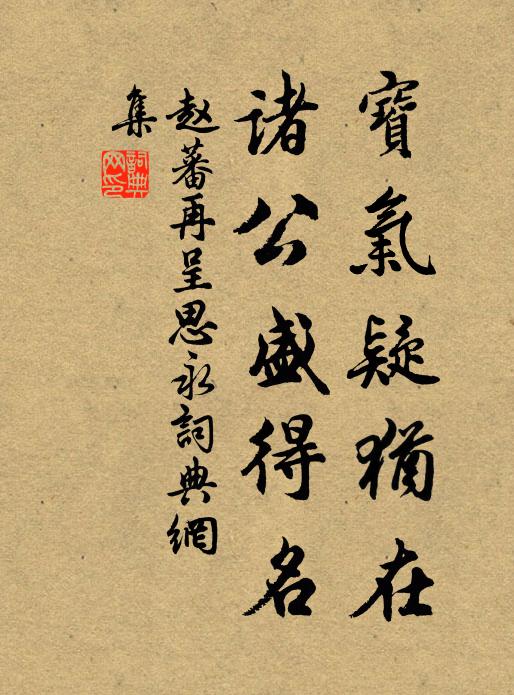 寶氣疑猶在
諸公盛得名
赵蕃再呈思永詞典網
集
詞典
网印